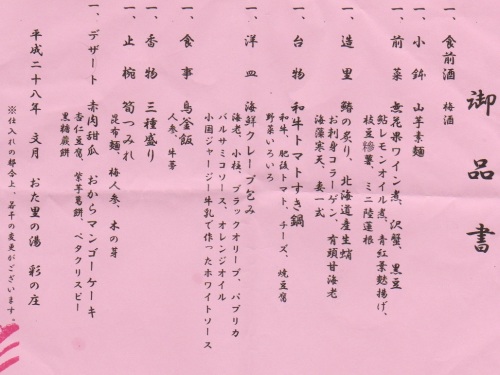 御品書
一、食前酒　梅酒
一、小鉢　山芋素麺
一、前菜　無花果ワイン煮、沢蟹、黒豆
鮎レモンオイル煮、青紅葉麩揚げ、
枝豆糝薯、ミニ陸蓮根
一、造里　鰆の炙り、北海道産生蛸
お刺身コラーゲン、有頭甘海老
海藻寒天、妻一式
一、台物　和牛トマトすき鍋
和牛、肥後トマト、チーズ、焼豆腐
野菜いろいろ
一、洋皿　海鮮クレープ包み
海老、小柱、ブラックオリーブ、パプリカ
バルサミコソース、オレンジオイル
小国ジャージー牛乳で作ったホワイトソース
一、食事　鳥釜飯
人参、牛蒡
一、香物　三種盛り
一、止椀　筍つみれ
昆布麺、梅人参、木の芽
一、デザート　赤肉甜瓜　おからマンゴーケーキ
杏仁豆腐、紫芋葛餅、ペタクリスピー
黒糖蕨餅
平成二十八年　文月　おた里の湯　彩の庄
※仕入れの都合上、若干の変更がございます。